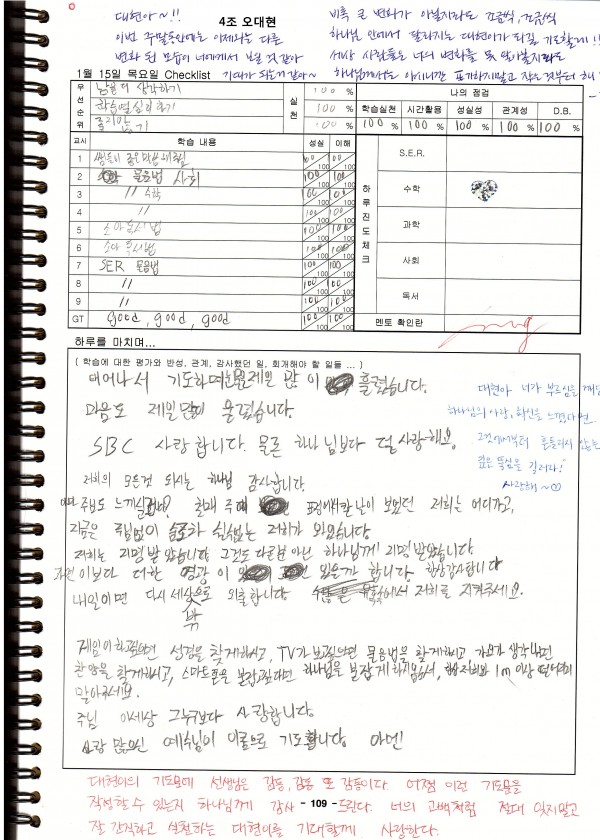 대현아~!!
이번 주말동안에는 이제와는 다른
변화 된 모습이 너에게서 보일 것 같아
기대가 되는거 같아~
비록 큰 변화가 아닐지라도 조금씩, 조금씩
하나님 안에서 달라지는 대현이가 되길 기도할께!!
세상 사람들은 너의 변화를 못 알아볼지라도
하나님께서는 아시니깐 포기하지말고 작은 것부터 해
4조 오대현
1월 15일 목요일 Checklist
우선순위
남용어 생각하기
학습열심히하기
졸지않기
실천
100 %
100 %
100 %
나의 점검
학습실천 시간활용 성실성 관계성 D.B.
100 % 100 % 100 % 100 % 100 %
교시 학습 내용 성실 이해
1 100 100
2 물음법 사회 100 100
3 〃 수학 100 100
4 〃 100 100
5 소아독서법 100 100
6 소아독서법 100 100
7 SER 물음법 100 100
8 〃 100 100
9 〃 100 100
GT good, good, good 100 100
하루진도체크
S.E.R.
수학
과학
사회
독서
멘토 확인란
하루를 마치며...
( 학습에 대한 평가와 반성, 관계, 감사했던 일, 회개해야 할 일들 ... )
태어나서 기도하며 눈물 제일 많이 흘렸습니다.
마음도 제일 많이 울렸습니다.
SBC 사랑합니다. 물론 하나님보다 덜 사랑해요.
저희의 모든것 되시는 하나님 감사합니다.
주님도 느끼셨나요? 첫째주 때 장난이 보였던 저희는 어디가고,
지금은 주님없이 살 수 없는 저희가 와있습니다
저희는 지명받았습니다. 그것도 다른분 아닌 하나님께 지명받았습니다.
이보다 더한 영광이 있을까 합니다. 항상감사합니다
내일이면 다시 세상 밖으로 외출합니다. 에서 저희를 지켜주세요.
게임이하고싶으면 성경을 찾게하시고, TV가 보고싶으면 물음법을 찾게하시고 가요가 생각나면
찬양을 찾게하시고, 스마트폰을 붙잡고싶다면 하나님을 붙잡게하시옵시며, 저희와 1m 이상 떨어지지
말아주세요.
주님 이세상 그누구보다 사랑합니다.
사랑 많으신 예수님이 이름으로 기도합니다. 아멘!
대현아 너가 부르심을 깨닫
하나님의 사랑, 헌신을 느꼈다면
그것에서부터 흔들리지 않는
믿음 뚝심을 길러라!
사랑해~
대현이의 기도문에 선생님은 감동, 감동 또 감동이다. 어쩜 이런 기도문을
작성할 수 있는지 하나님께 감사 드린다. 너의 고백처럼 절대 잊지말고
- 109 -
잘 간직하고 실천하는 대현이를 기대할께 사랑한다.